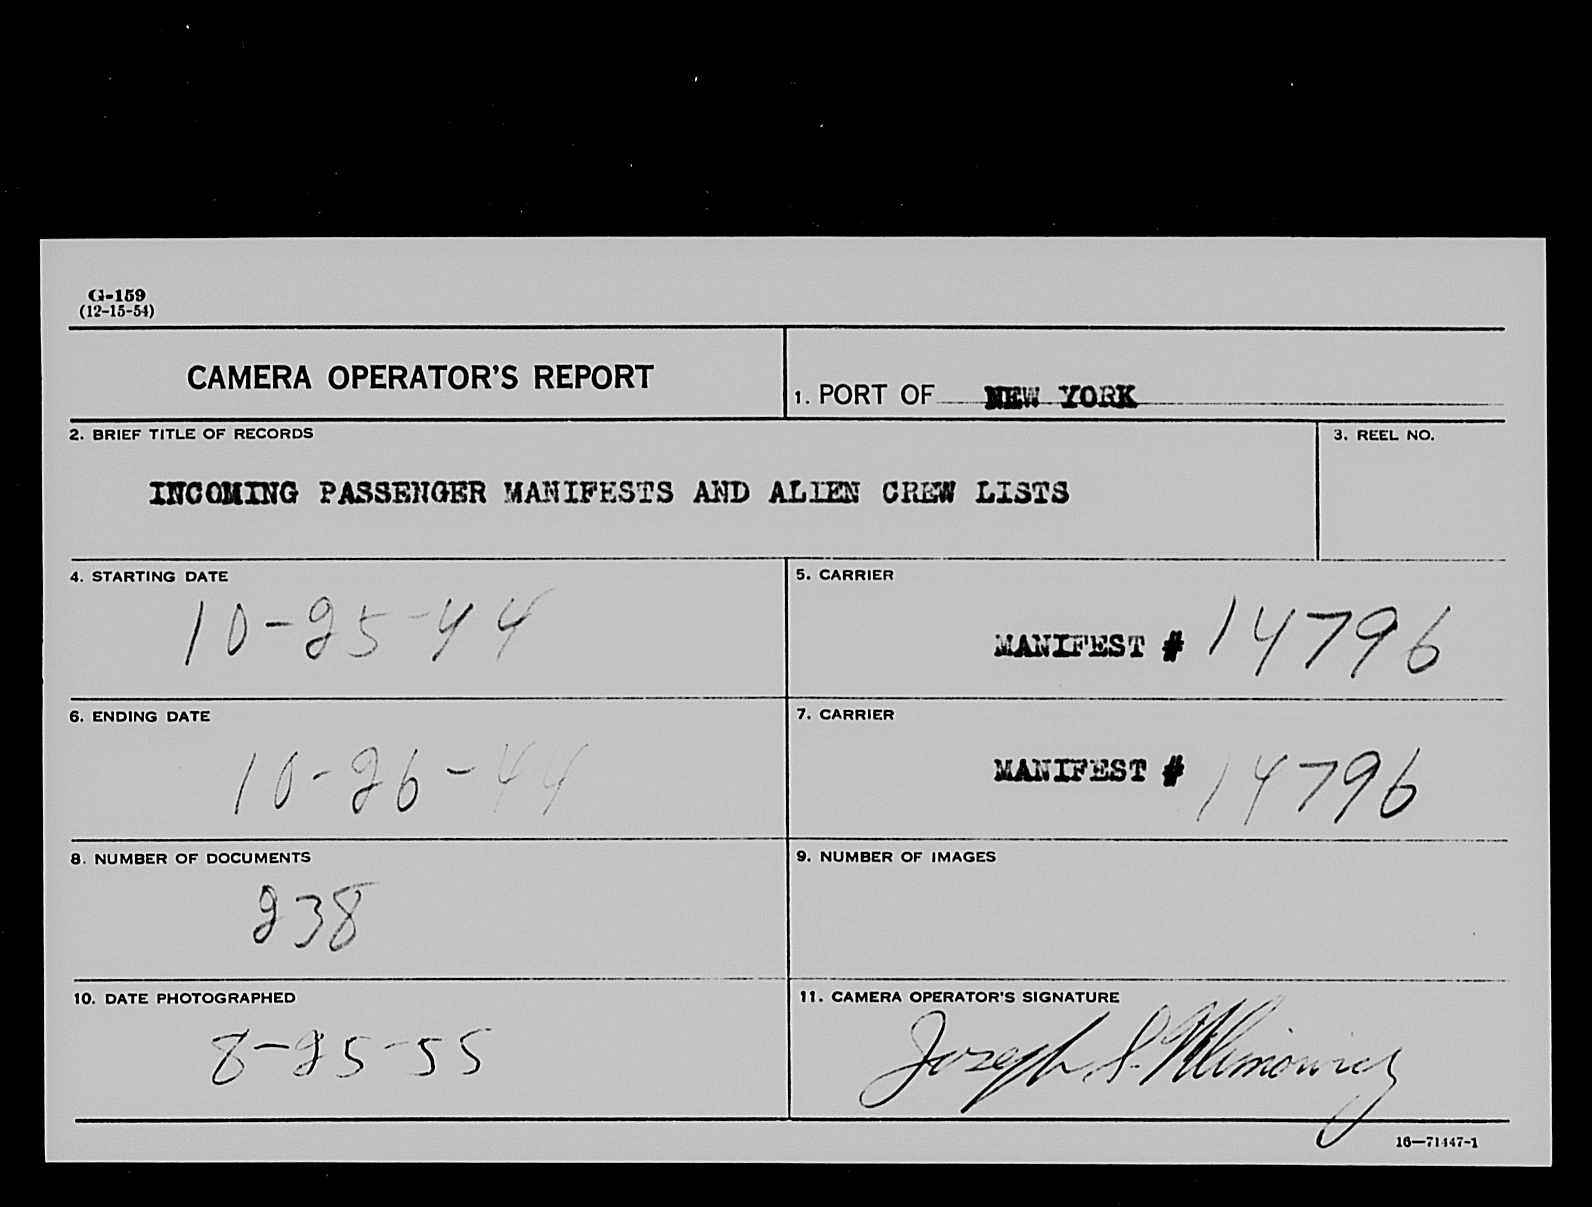 G-159
(12-15-54)
CAMERA OPERATOR'S REPORT
1. PORT OF NEW YORK
2. BRIEF TITLE OF RECORDS
3. REEL NO.
INCOMING PASSENGER MANIFESTS AND ALIEN CREW LISTS
4. STARTING DATE
10-25-44
5. CARRIER
MANIFEST # 14796
6. ENDING DATE
10-26-44
7. CARRIER
MANIFEST # 14796
8. NUMBER OF DOCUMENTS
238
9. NUMBER OF IMAGES
10. DATE PHOTOGRAPHED
8-25-55
11. CAMERA OPERATOR'S SIGNATURE
Joseph S.
16—71447-1